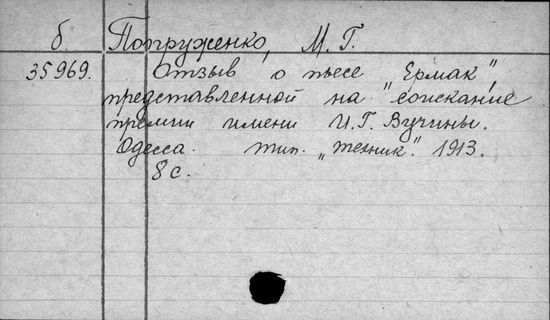 б Погруженко, М. Г.
35969. Отзыв о пьесе "Ермак",
представленной на "соискание
премии имени И. Г. Вучины.
Одесса. тип. „Техник". 1913.
8 с.